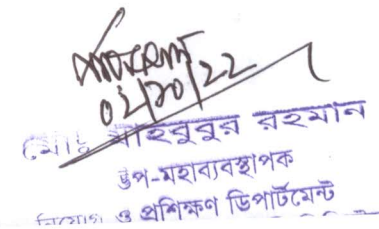 ০২/১০/২২
মোঃ মাহবুবুর রহমান
উপ-মহাব্যবস্থাপক
নিয়োগ ও প্রশিক্ষণ ডিপার্টমেন্ট